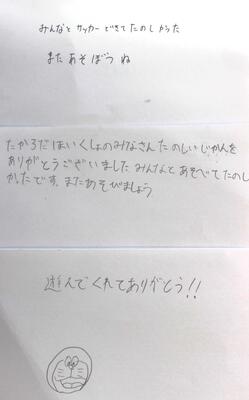 みんなと サッカー できて たのしかった
また あそぼうね
たかろだはいくしょのみなさん たのしいじかんを
ありがとうございました みんなとあそべてたのし
かったです。またあそびましょう
遊んでくれてありがとう!!